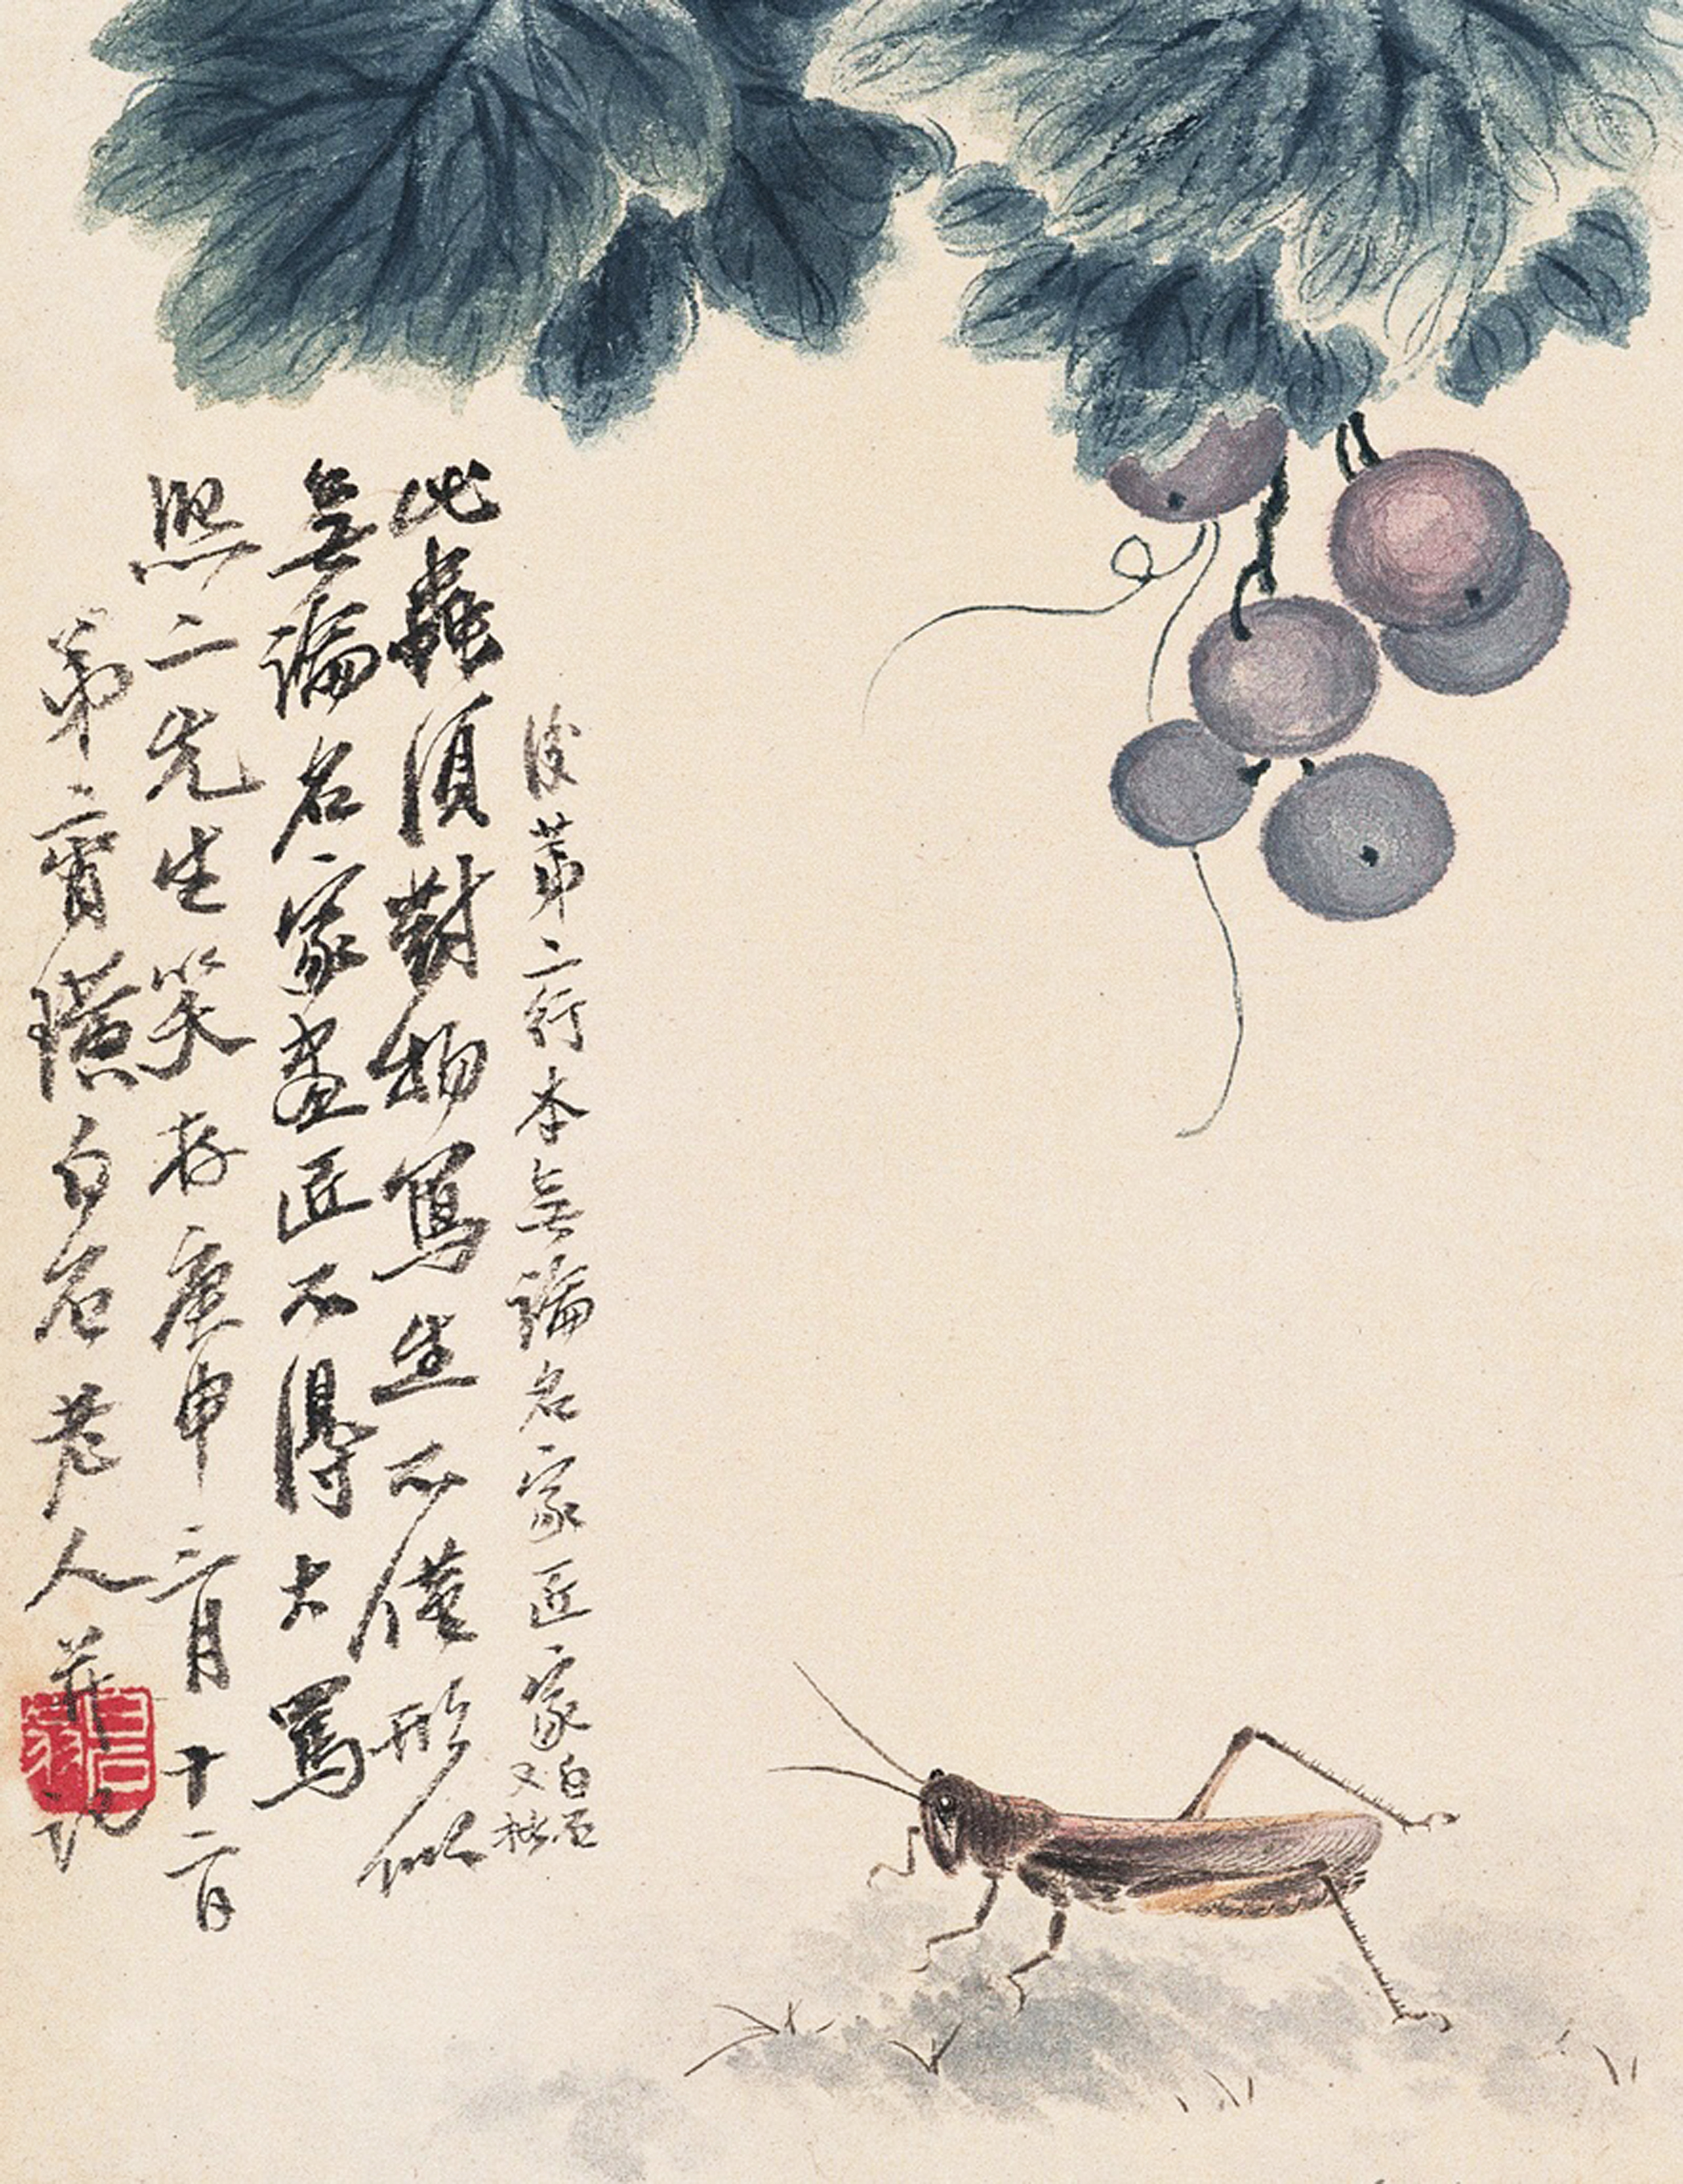 後第二行本無論名家匠家白石
又批
此蟲須對物寫生不僅形似
無論名家畫匠不得大罵
照二先生笑存庚申三月十二日
弟齊璜白石老人并記
白石翁